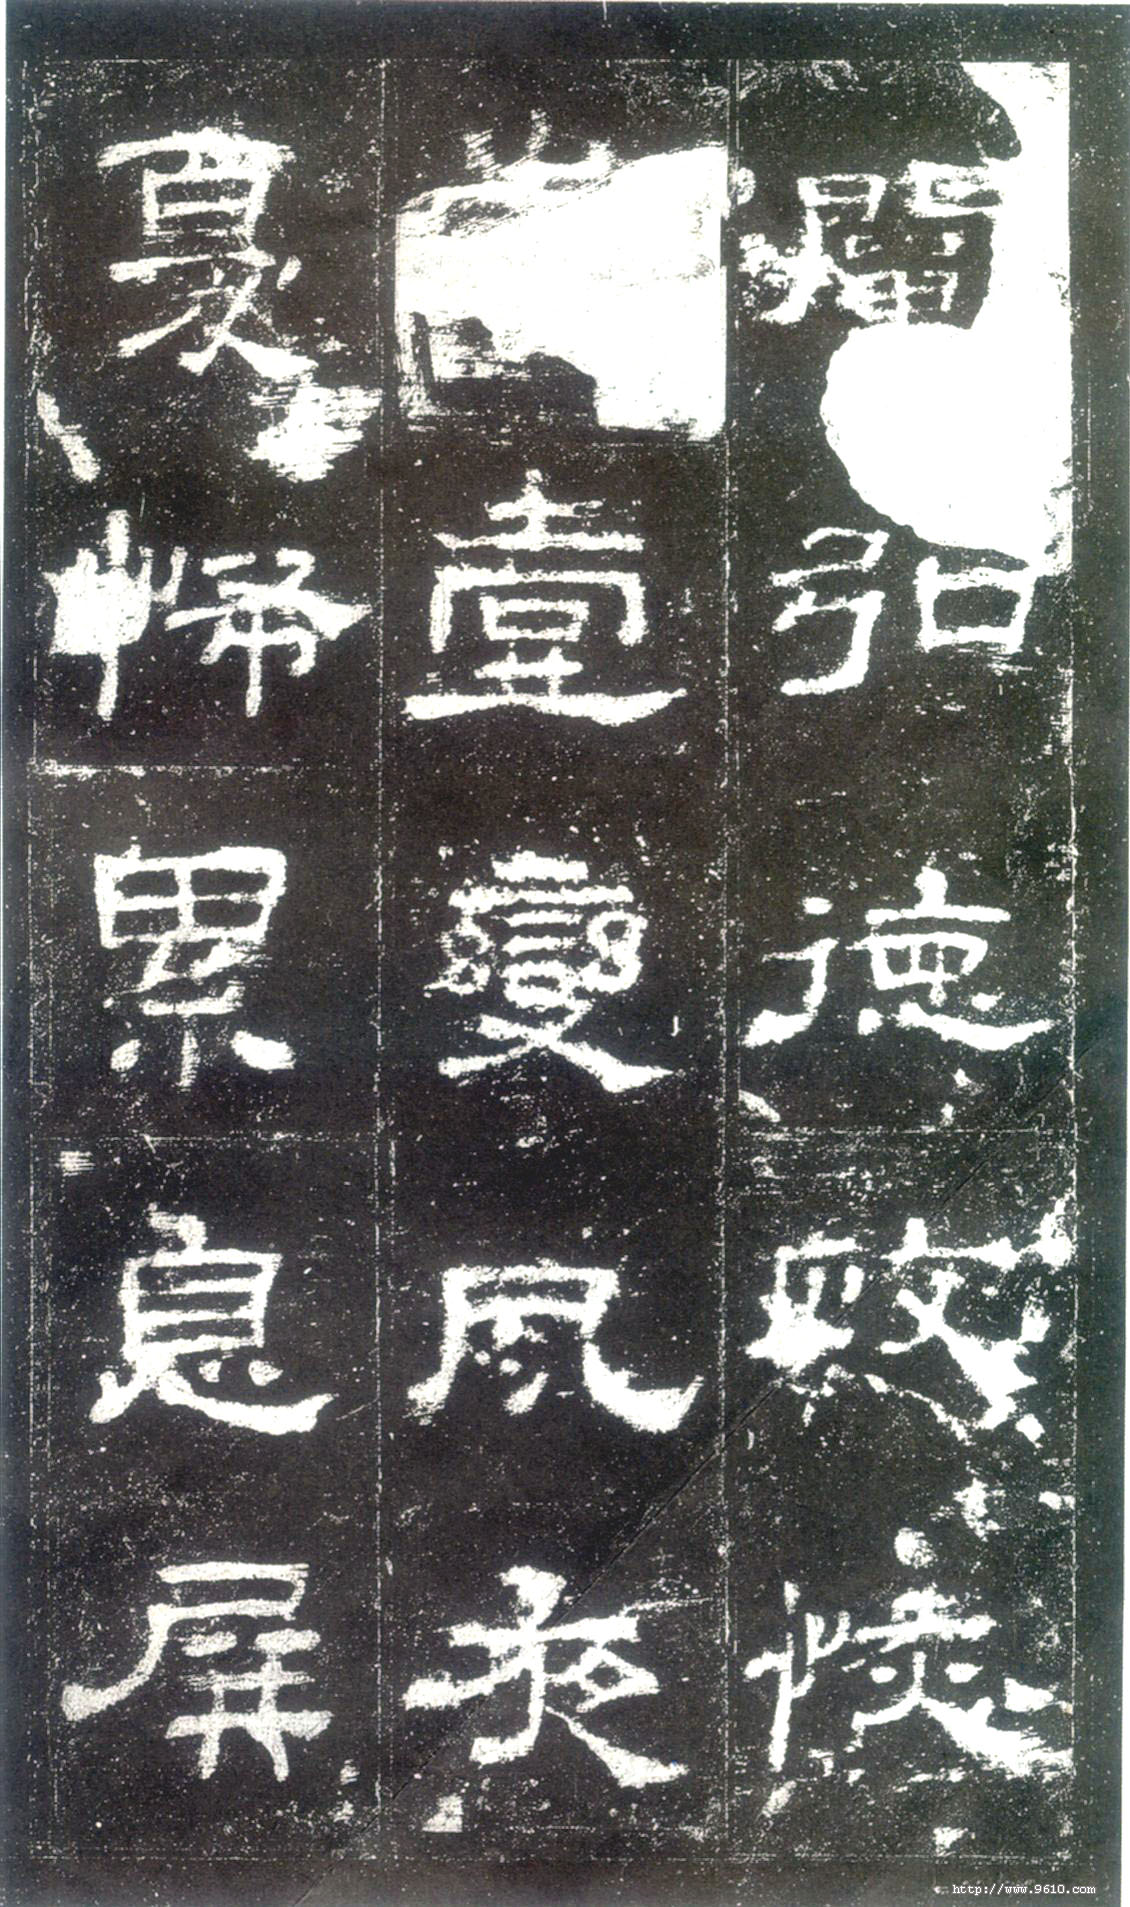 闡弘德政恢
壹變夙夜
憂怖累息屏
http://www.9610.com